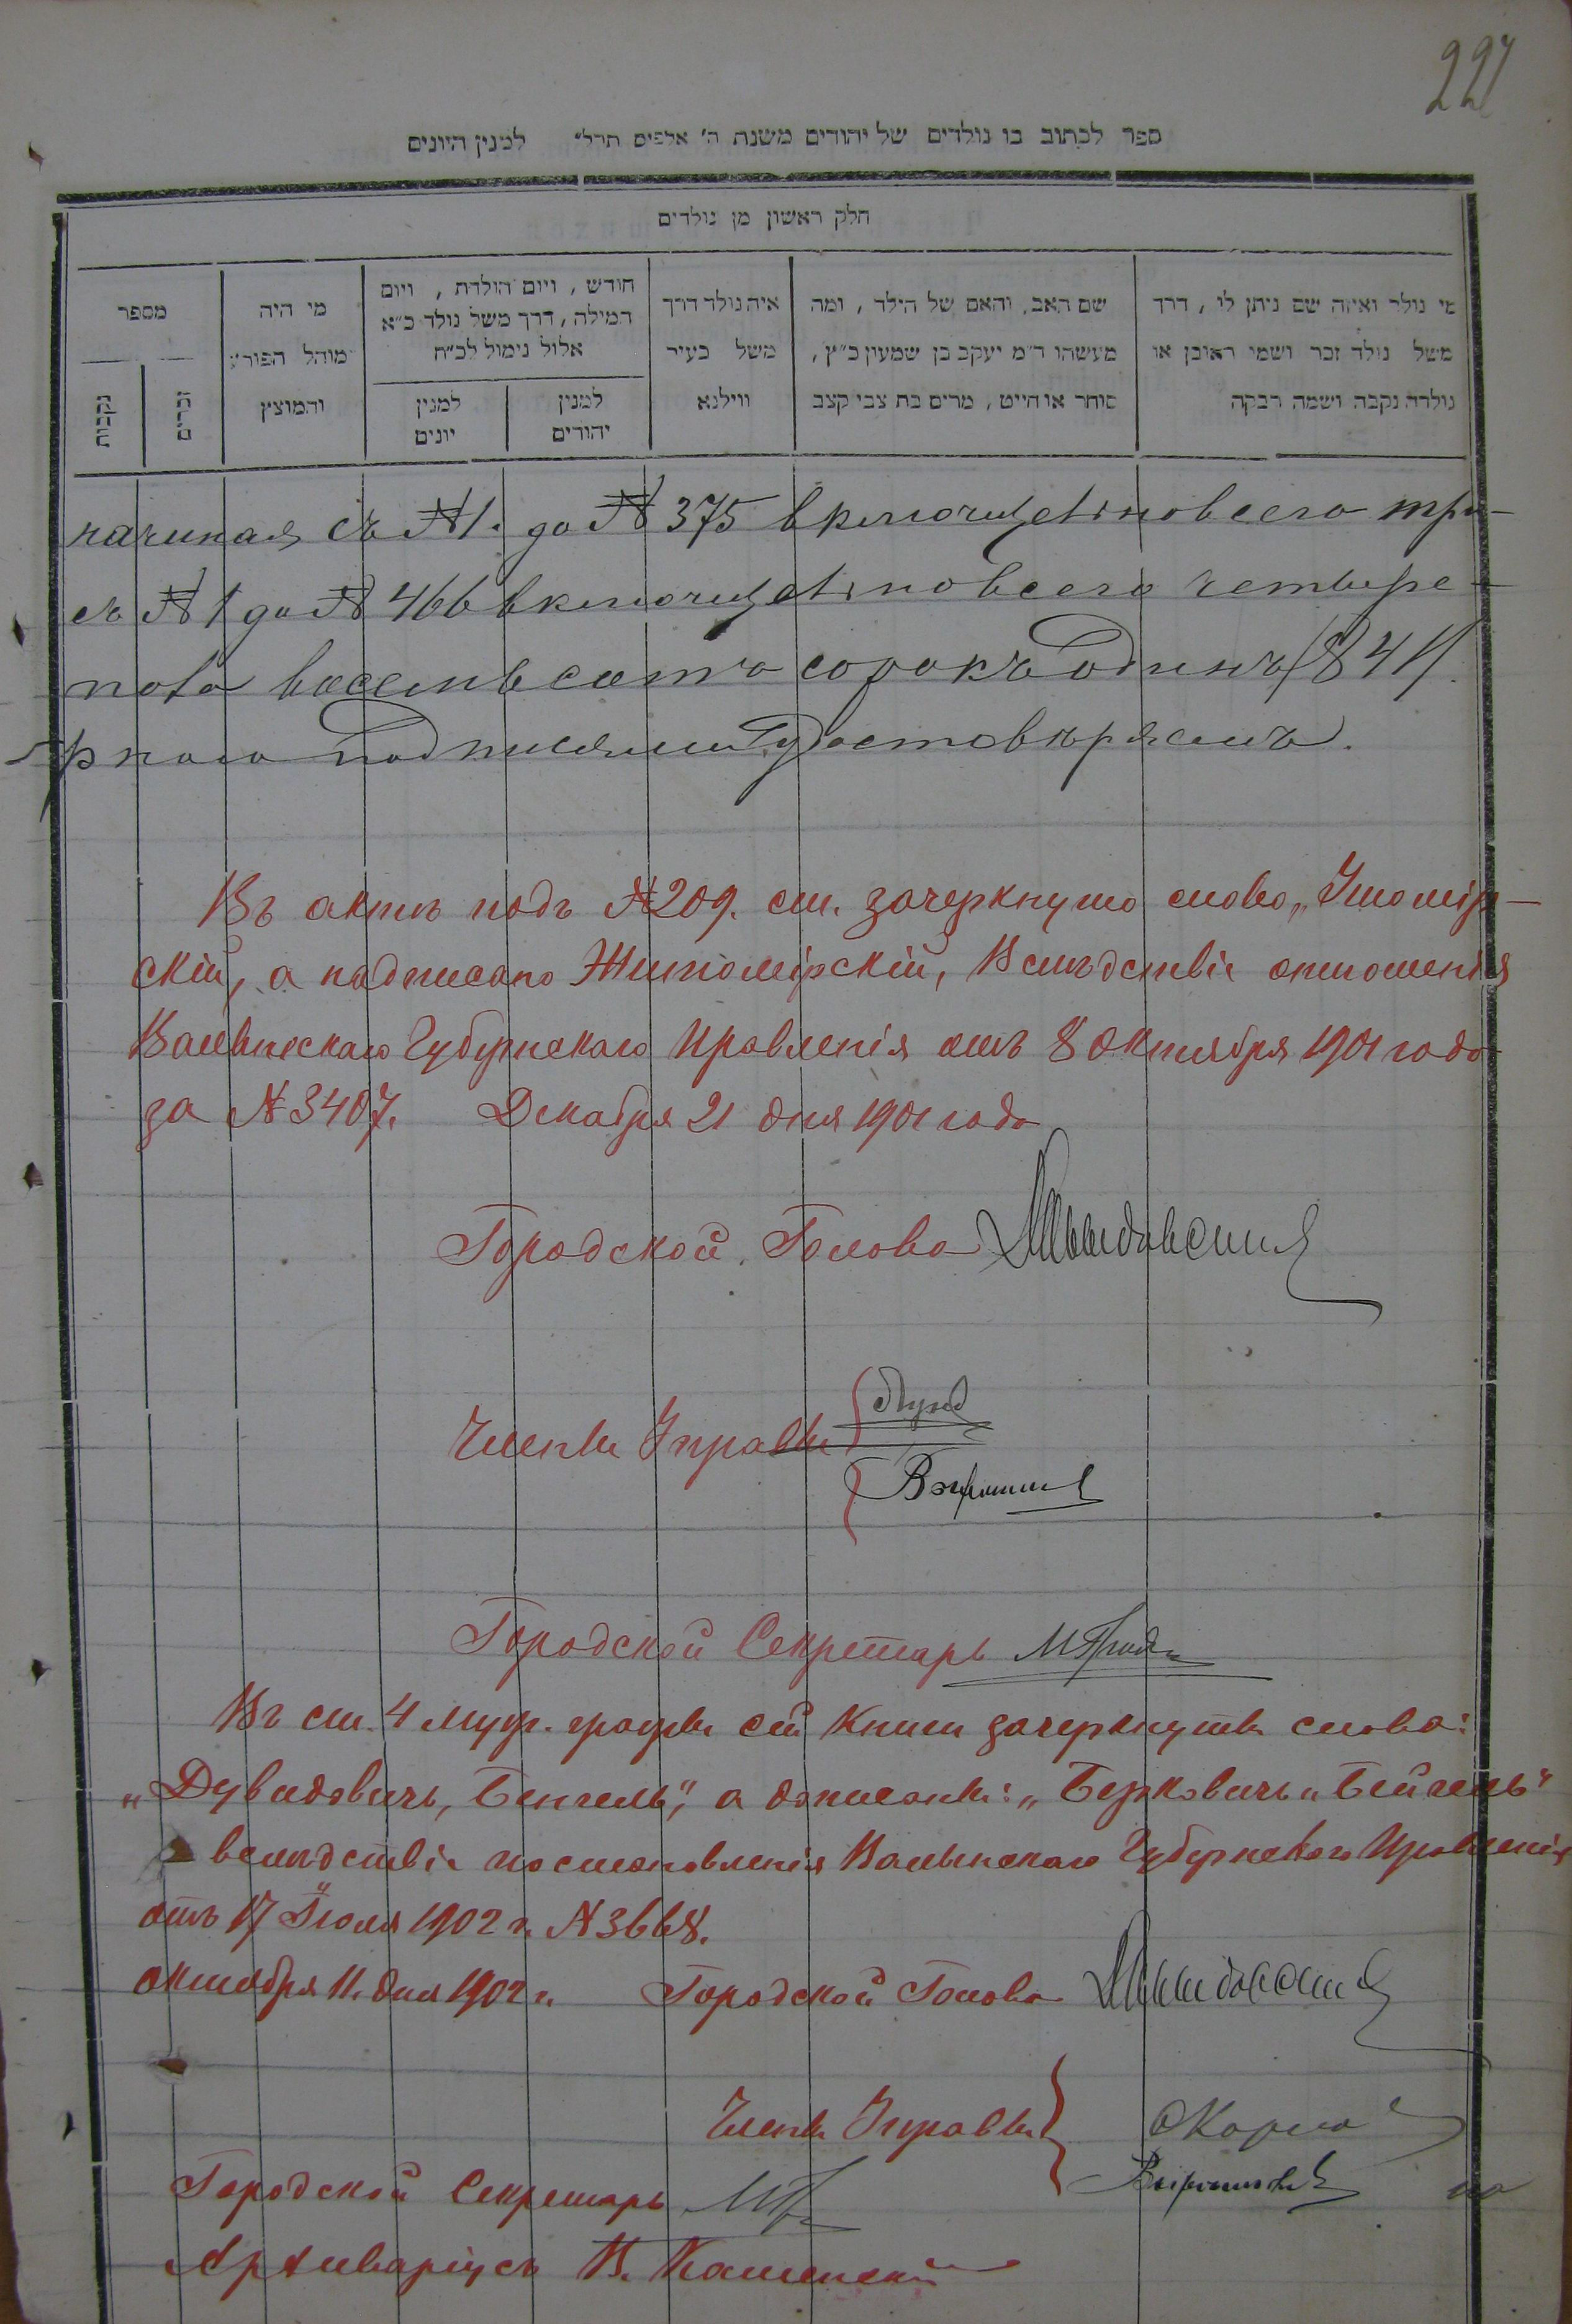 221
ספר לכתוב בו נולדים של יהודים משנת ה' אלפים תרל" למנין היונים
חלק ראשון מן נולדים
מי נולד ואיזה שם ניתן לו, דרך
משל נולד זכר ושמו ראובן או
נולדה נקבה ושמה רבקה
שם האב, והאם של הילד, ומה
מעשהו ד"מ יעקב בן שמעון כ"ץ,
סוחר או חייט, מרים בת צבי קצב
איה נולד דרך
משל בעיר
ווילנא
חודש, ויום הולדת, ויום
המילה, דרך משל נולד כ"א
אלול נימול לכ"ח
למנין
יהודים
למנין
יונים
מי היה
מוהל הפורע
והמוצץ
מספר
זכרים
נקבות
начиная съ №1. до № 375 включительно всего три-
съ №1 до № 466 включительно всего четыре-
восемьсотъ сорокъ одинъ (841).
подписями удостовѣряемъ.
Въ актѣ подъ №209. ст. зачеркнуто слово „Утомір-
скій, а надписано Житомірскій, Вслѣдствіе отношенія
Волынскаго Губернскаго Правленія отъ 8 Октября 1901 года
за №3407. Декабря 21 дня 1901 года
Городской Голова
Члены Управы
Городской Секретарь
Въ ст. 4 муж. графы сей книги зачеркнуты слова:
„Дувидовичъ, Бенгель", а дописаны: „Берковичъ „Бейгель"
вслѣдствіе постановленія Волынскаго Губернскаго Правленія
отъ 17 Іюля 1902 г. №3668.
Октября 11. дня 1902 г. Городской Голова
Члены Управы
Городской Секретарь
Архиваріусъ